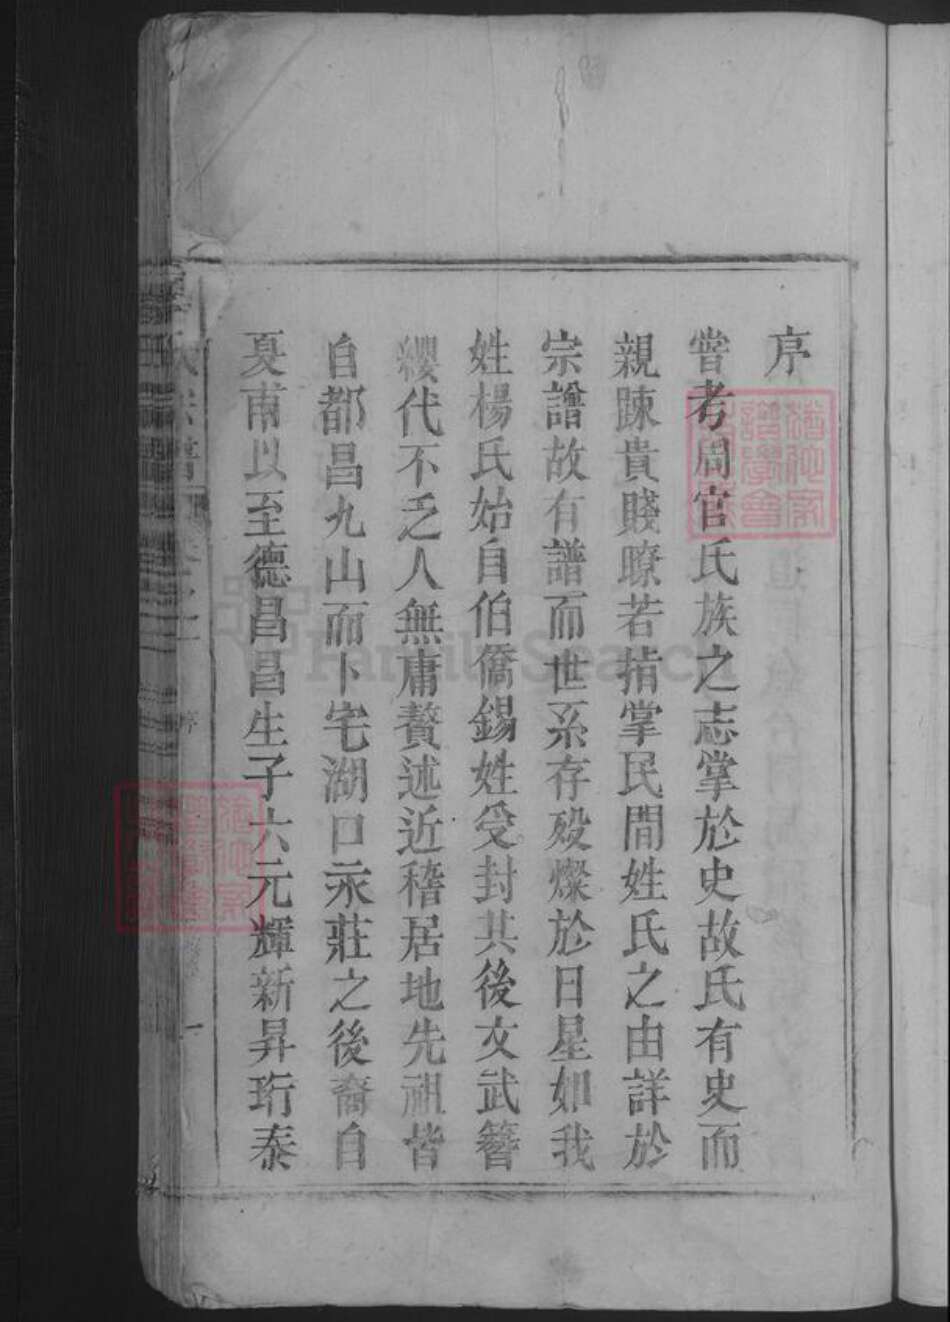 序
嘗考周官氏族之志掌於史故氏有史而
親踈貴賤瞭若指掌民間姓氏之由詳於
宗譜故有譜而世系存殁燦於日星如我
姓楊氏始自伯僑錫姓受封其後文武簪
纓代不乏人無庸贅述近稽居地先祖皆
自都昌九山而卜宅湖口氶莊之後裔自
夏甫以至德昌昌生子六元輝新昇珩泰
氏宗譜
序
一
FamilySearch